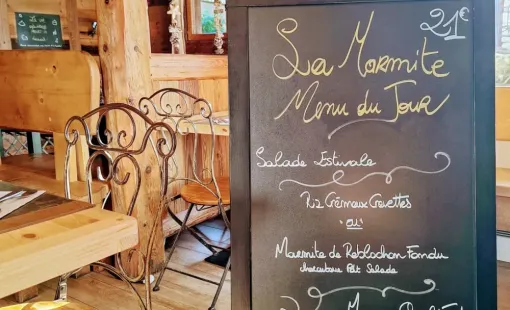 21€
La Marmite
Menu du Jour
Salade Estivale
Riz Crémeux Crevettes
ou
Marmite de Reblochon Fondu
charcuterie Pdt Salade